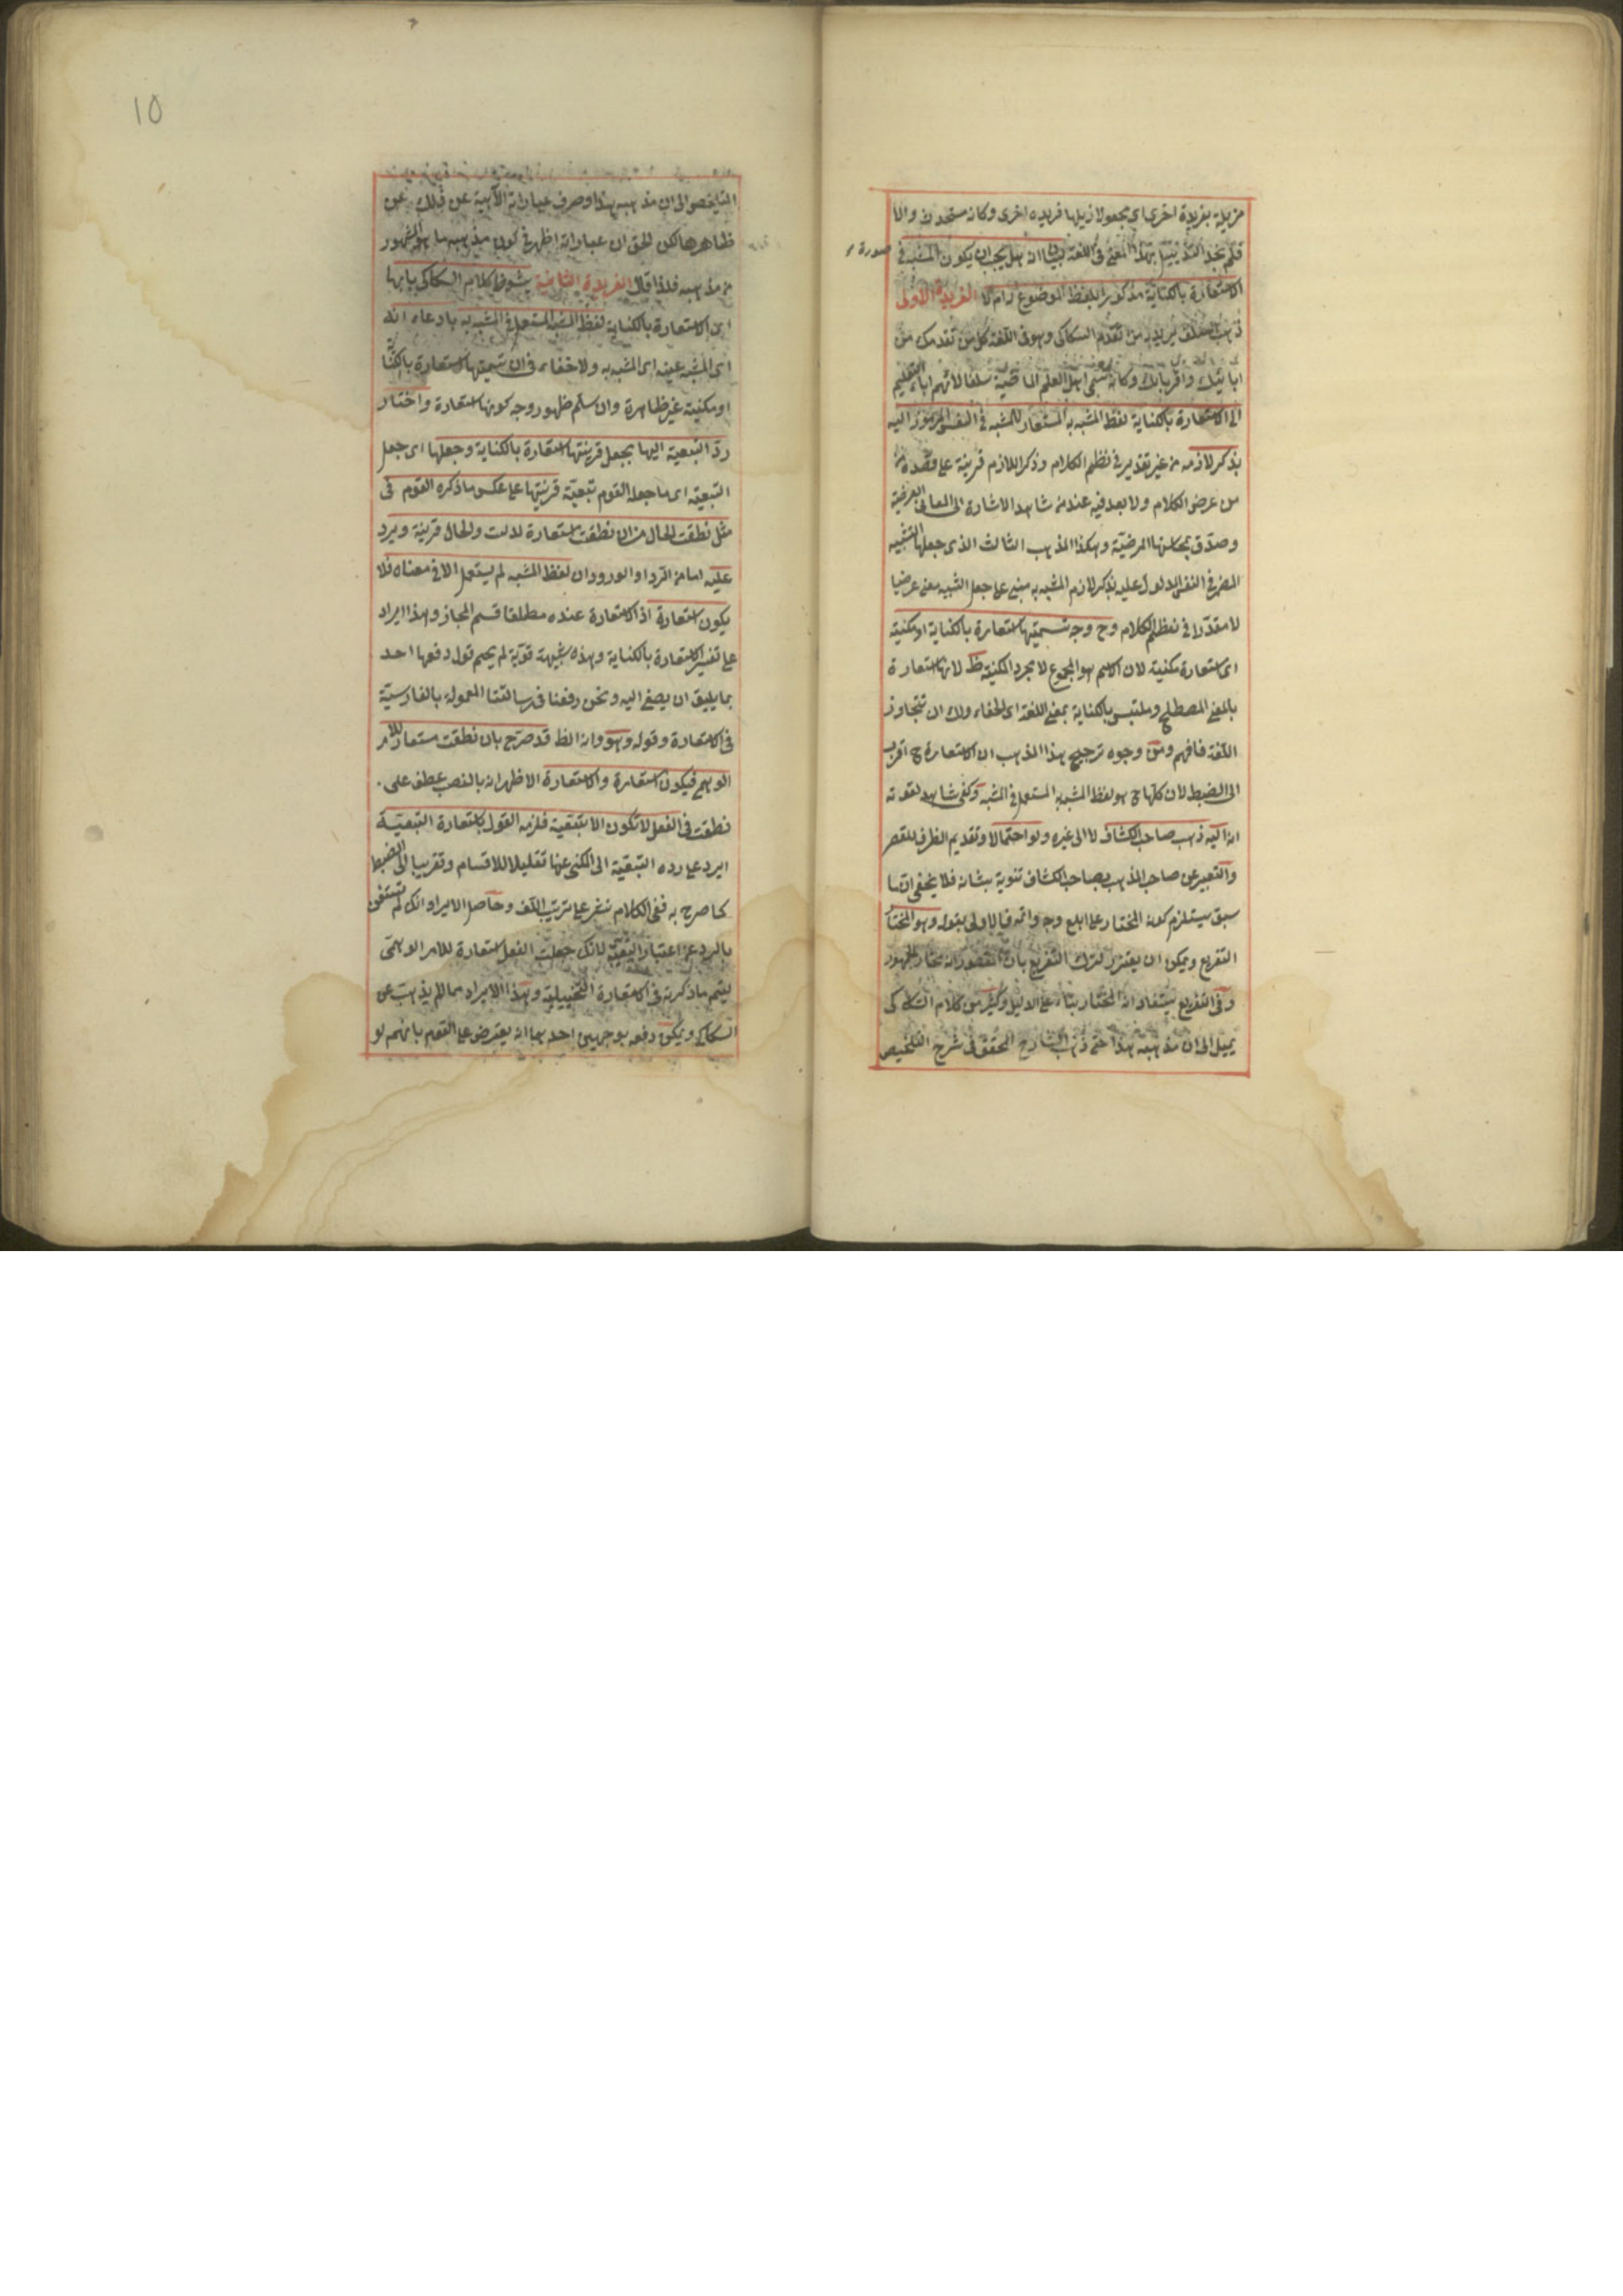 مزيلة بفريدة اخرى اى مجعولا ذيلها فريدة اخرى وكانه مستحدث والا
فلم نجد التذييل بهذا المعنى فى اللغة لبيان انه هل يجب ان يكون المشبه فى صورة
الاستعارة بالكناية مذكورا بلفظ الموضوع له ام لا الفريدة الاولى
ذهب السلف يريد به من تقدم السكاكى وهو فى اللغة كل من تقدمك من
ابائك واقربائك وكانه سمى اهل العلم الماضية سلفا لانهم اباء التعليم
الى ان الاستعارة بالكناية لفظ المشبه به المستعار للمشبه فى النفس المرموز اليه
بذكر لازمه من غير تقدير فى نظم الكلام وذكر اللازم قرينة على قصده من
من عرض الكلام ولا بعد فيه عند من شاهد الاشارة الى المعانى العرضية
وصدق بمحاسنها المرضية وهكذا المذهب الثالث الذى جعلها التشبيه
المضمر فى النفس المدلول عليه بذكر لازم المشبه به مبنى على جعل التشبيه معنى عرضيا
لا مقدرا فى نظم الكلام وح وجه تسميتها استعارة بالكناية او مكنية
اى استعارة مكنية لان الاسم هو المجموع لا مجرد المكنية ظ لانها استعارة
بالمعنى المصطلح وملتبس بالكناية بمعنى اللغة اى الخفاء ولك ان تتجاوز
اللغة فافهم ومن وجوه ترجيح هذا المذهب ان الاستعارة ح اقرب
الى الضبط لان كلها ح هو لفظ المشبه به المستعمل فى المشبه وكفى شاهد لقوته
انه اليه ذهب صاحب الكشاف لا الى غيره ولو احتمالا وتقديم الظرف للقصر
والتعبير عن صاحب المذهب بصاحب الكشاف تنويه بشانه فلا يخفى ان ما
سبق يستلزم كونه المختار على ابلغ وجه واتمه فالاولى بقوله وهو المختار
التفريع ويمكن ان يعتذر لترك التفريع بان المقصود انه مختار الجمهور
وفى التفريع يستفاد انه المختار بناء على الدليل وكثير من كلام السكاكى
يميل الى ان مذهبه هذا حتى ذهب الشارح المحقق فى شرح التلخيص
١٥
التلخيص الى ان مذهبه هذا وصرف عباراته الآبية عن ذلك عن
ظاهرها لكن الحق ان عباراته اظهر فى كون مذهبه ما هو المشهور
من مذهبه فلذا قال الفريدة الثانية يشعر ظ كلام السكاكى بانها
اى الاستعارة بالكناية لفظ المشبه المستعمل فى المشبه به بادعاء انه
اى المشبه عينه اى المشبه به ولا خفاء فى ان تسميتها استعارة بالكناية
او مكنية غير ظاهرة وان سلم ظهور وجه كونها استعارة واختار
رد التبعية اليها بجعل قرينتها استعارة بالكناية وجعلها اى جعل
التبعية اى ما جعله القوم تبعية قرينتها على عكس ما ذكره القوم فى
مثل نطقت الحال من ان نطقت استعارة لدلت والحال قرينة ويرد
عليه اما من الرد او الورود ان لفظ المشبه لم يستعمل الا فى معناه فلا
يكون استعارة اذ الاستعارة عنده مطلقا قسم المجاز وهذا ايراد
على تفسير الاستعارة بالكناية وهذه شبهة قوية لم يحم حول دفعها احد
بما يليق ان يصغى اليه ونحن دفعنا فى رسالتنا المعمولة بالفارسية
فى الاستعارة وقوله وهو وانه الظ قد صرح بان نطقت مستعار للامر
الوهمى فيكون استعارة والاستعارة الاظهر انه بالنصب عطف على
نطقت فى الفعل لا تكون الا تبعية فلزمه القول بالاستعارة التبعية
ايراد على رده التبعية الى المكنى عنها تقليلا للاقسام وتقريبا الى الضبط
كما صرح به ففى الكلام نشر على ترتيب اللف وحاصل الايراد انك لم تستغن
بالرد عن اعتبار التبعية لانك جعلت الفعل استعارة للامر الوهمى
ليتم ما ذكرته فى الاستعارة التخييلية وهذا الايراد مما لم يذهب عن
السكاكى ويمكن دفعه بوجهين احدهما انه يعترض على القوم بانهم لو